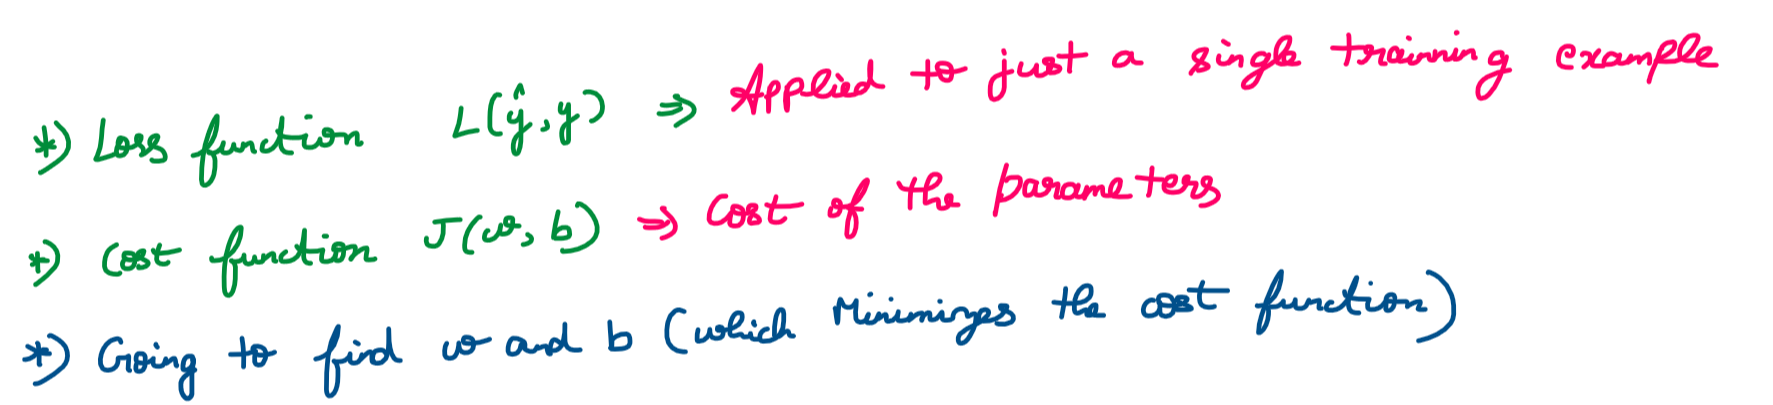 *) Loss function L(ŷ,y) ⇒ Applied to just a single training example
*) Cost function J(w, b) ⇒ Cost of the parameters
*) Going to find w and b (which Minimizes the cost function)